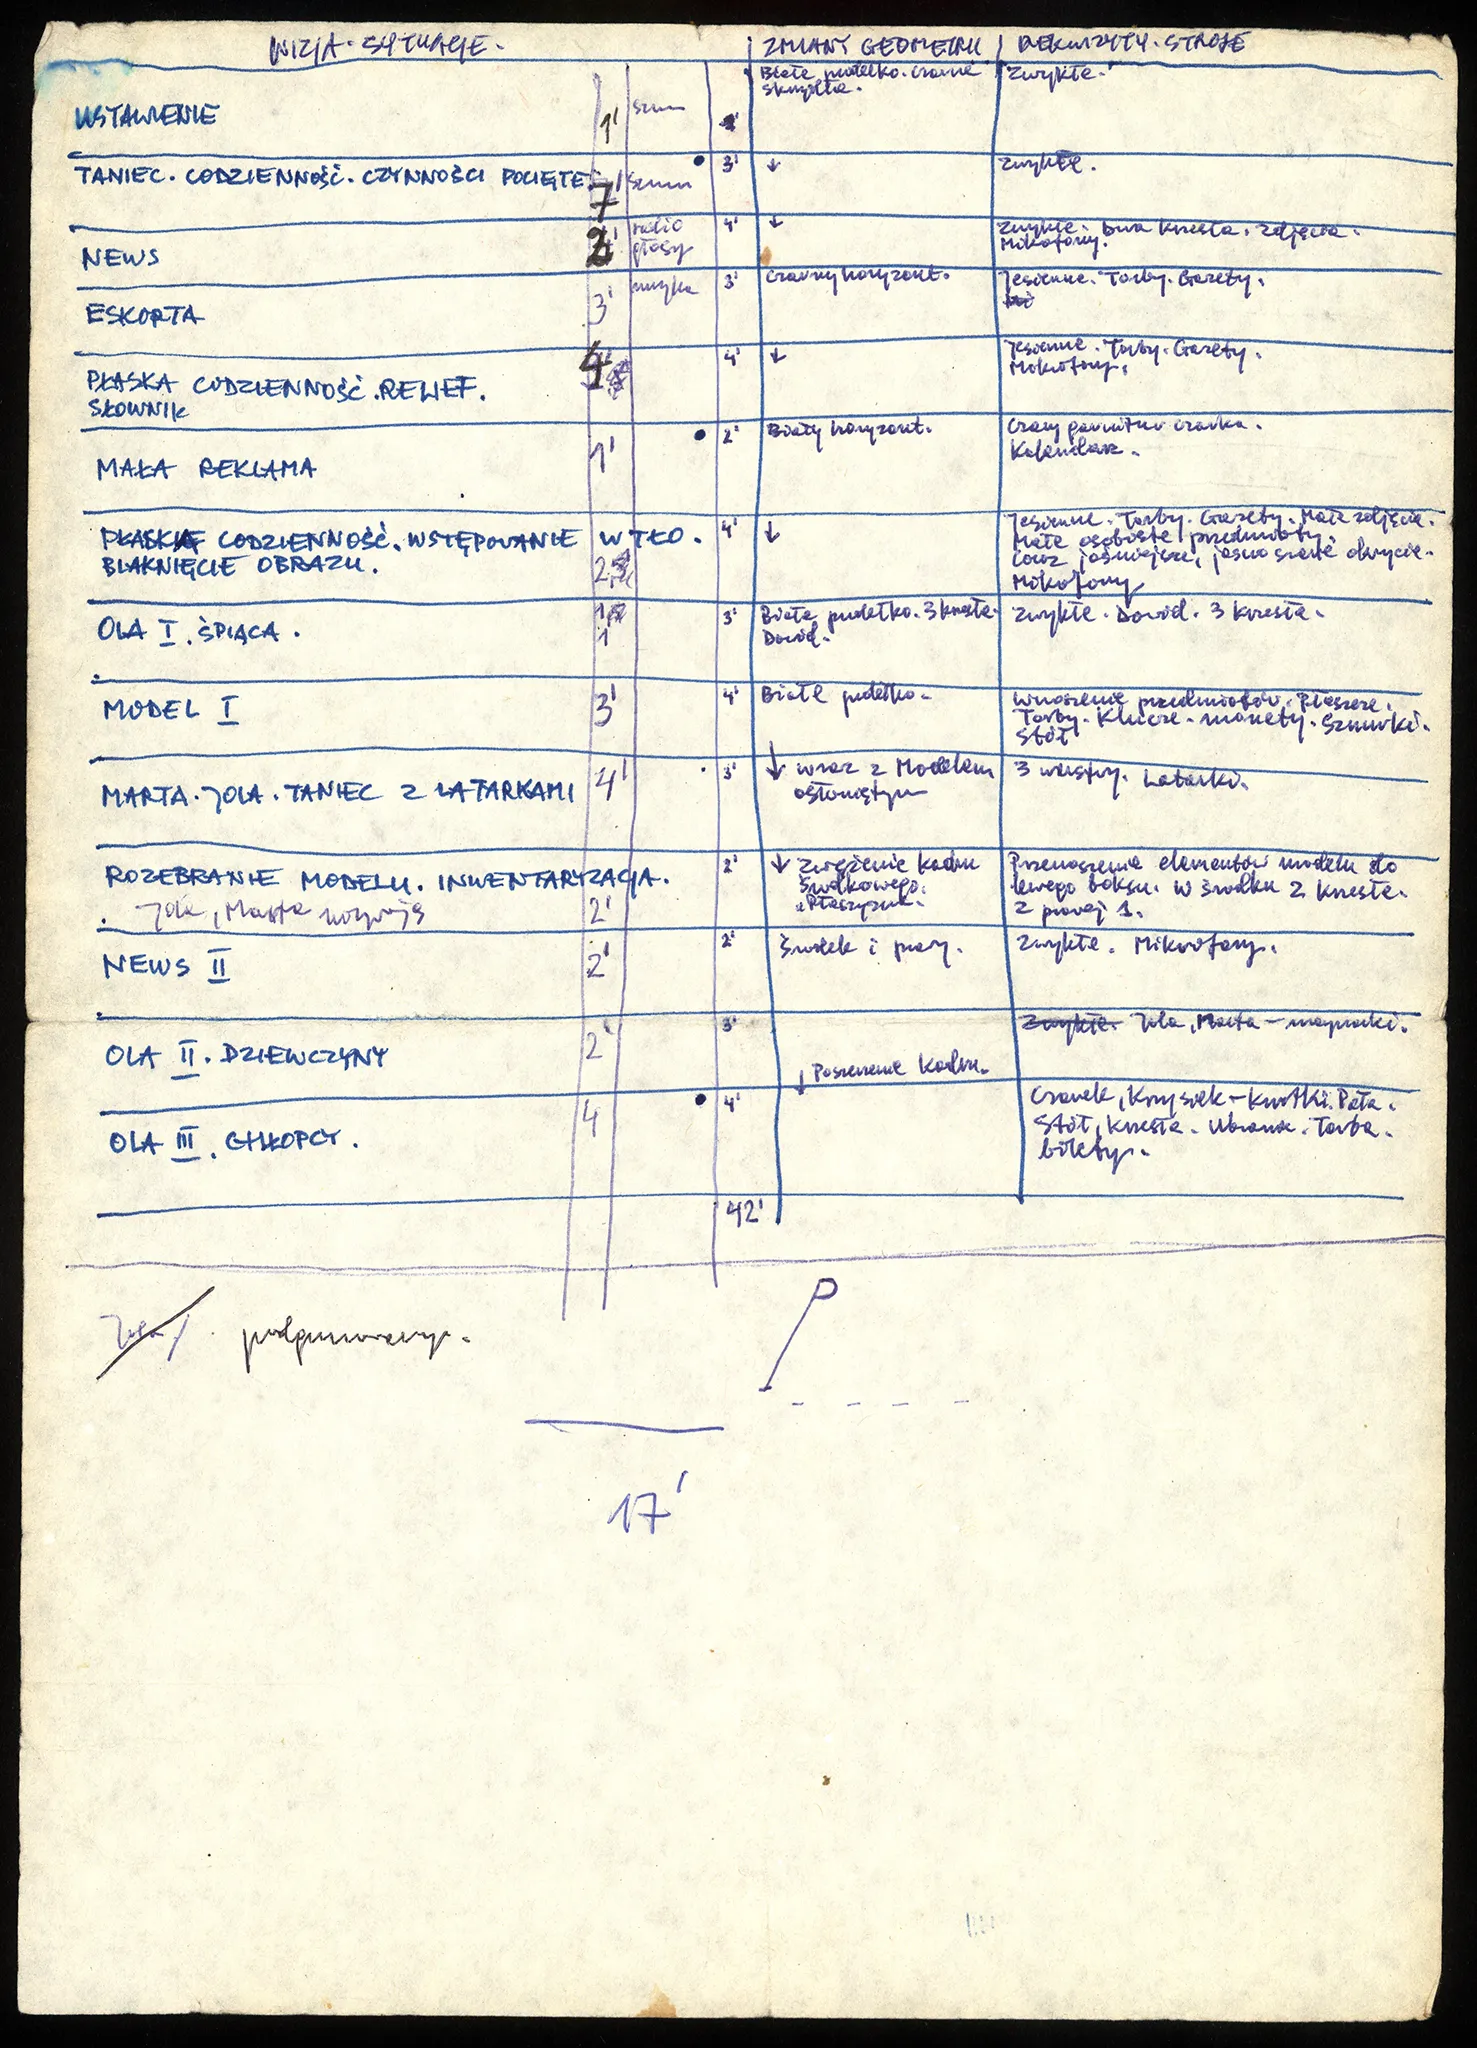 WIZJA · SYTUACJE · ZMIANY GEOMETRII REKWIZYTY · STROJE
USTAWIENIE 1' szum Białe pudełko. Czarne skrzydła. Zwykłe.
TANIEC · CODZIENNOŚĆ · CZYNNOŚCI POCIĘTE 7' szum 3' ↓ Zwykłe.
NEWS 2' radio głosy 4' ↓ Zwykłe. Dwa krzesła. Zdjęcia.
Mikrofony.
ESKORTA 3' muzyka 3' Czarny horyzont. Jesienne. Torby. Gazety.
PŁASKA CODZIENNOŚĆ. RELIEF. 4' 4' ↓ Jesienne. Torby. Gazety.
SŁOWNIK Mikrofony.
MAŁA REKLAMA 1' 2' Biały horyzont. Czarny garnitur Czarka.
Kalendarz.
PŁASKA CODZIENNOŚĆ. WSTĘPOWANIE W TŁO. 4' ↓ Jesienne. Torby. Gazety. Małe zdjęcia.
BLAKNIĘCIE OBRAZU. 2 Małe osobiste przedmioty.
Coraz jaśniejsze, jasno szare okrycie.
Mikrofony
OLA I. ŚPIĄCA. 1 3' Białe pudełko. 3 krzesła. Zwykłe. Dawid. 3 krzesła.
Dawid.
MODEL I 3' 4' Białe pudełko. Wnoszenie przedmiotów. Płaszcze.
Torby. Klucze. monety. Sznurki.
Stół
MARTA · JOLA · TANIEC Z LATARKAMI 4' 3' ↓ wraz z Modelem 3 warstwy. Latarki.
osłoniętym
ROZEBRANIE MODELU. INWENTARYZACJA. 2' ↓ Zwężenie kadru Przenoszenie elementów modelu do
Jola, Marta 2' środkowego. lewego boksu. W środku 2 krzesła.
Z prawej 1.
NEWS II 2' 2' Środek i prawy. Zwykłe. Mikrofony.
OLA II. DZIEWCZYNY 2' 3' Zwykłe. Jola, Marta – marynarki.
↓ Poszerzenie kadru.
OLA III. CHŁOPCY. 4 4' Czarek, Krzysiek – kurtki. Pała.
Stół, krzesła. Ubranie. Torba.
bilety.
42'
Jola
17'